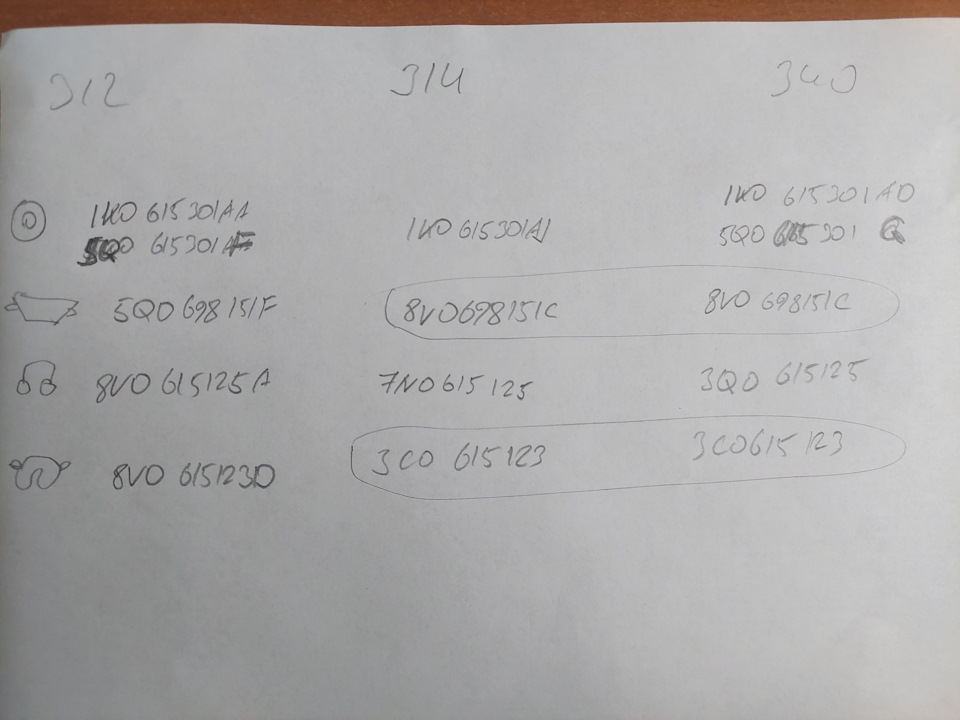 312 314 340
1K0 615301AA 1K0 615301AD
5Q0 615301 1K0 615301AJ 5Q0 615 301 G
5Q0 698 151F 8V0698151C 8V0 698151C
8V0 615125A 7N0615125 3Q0 615125
8V0 615123D 3C0 615123 3C0615123